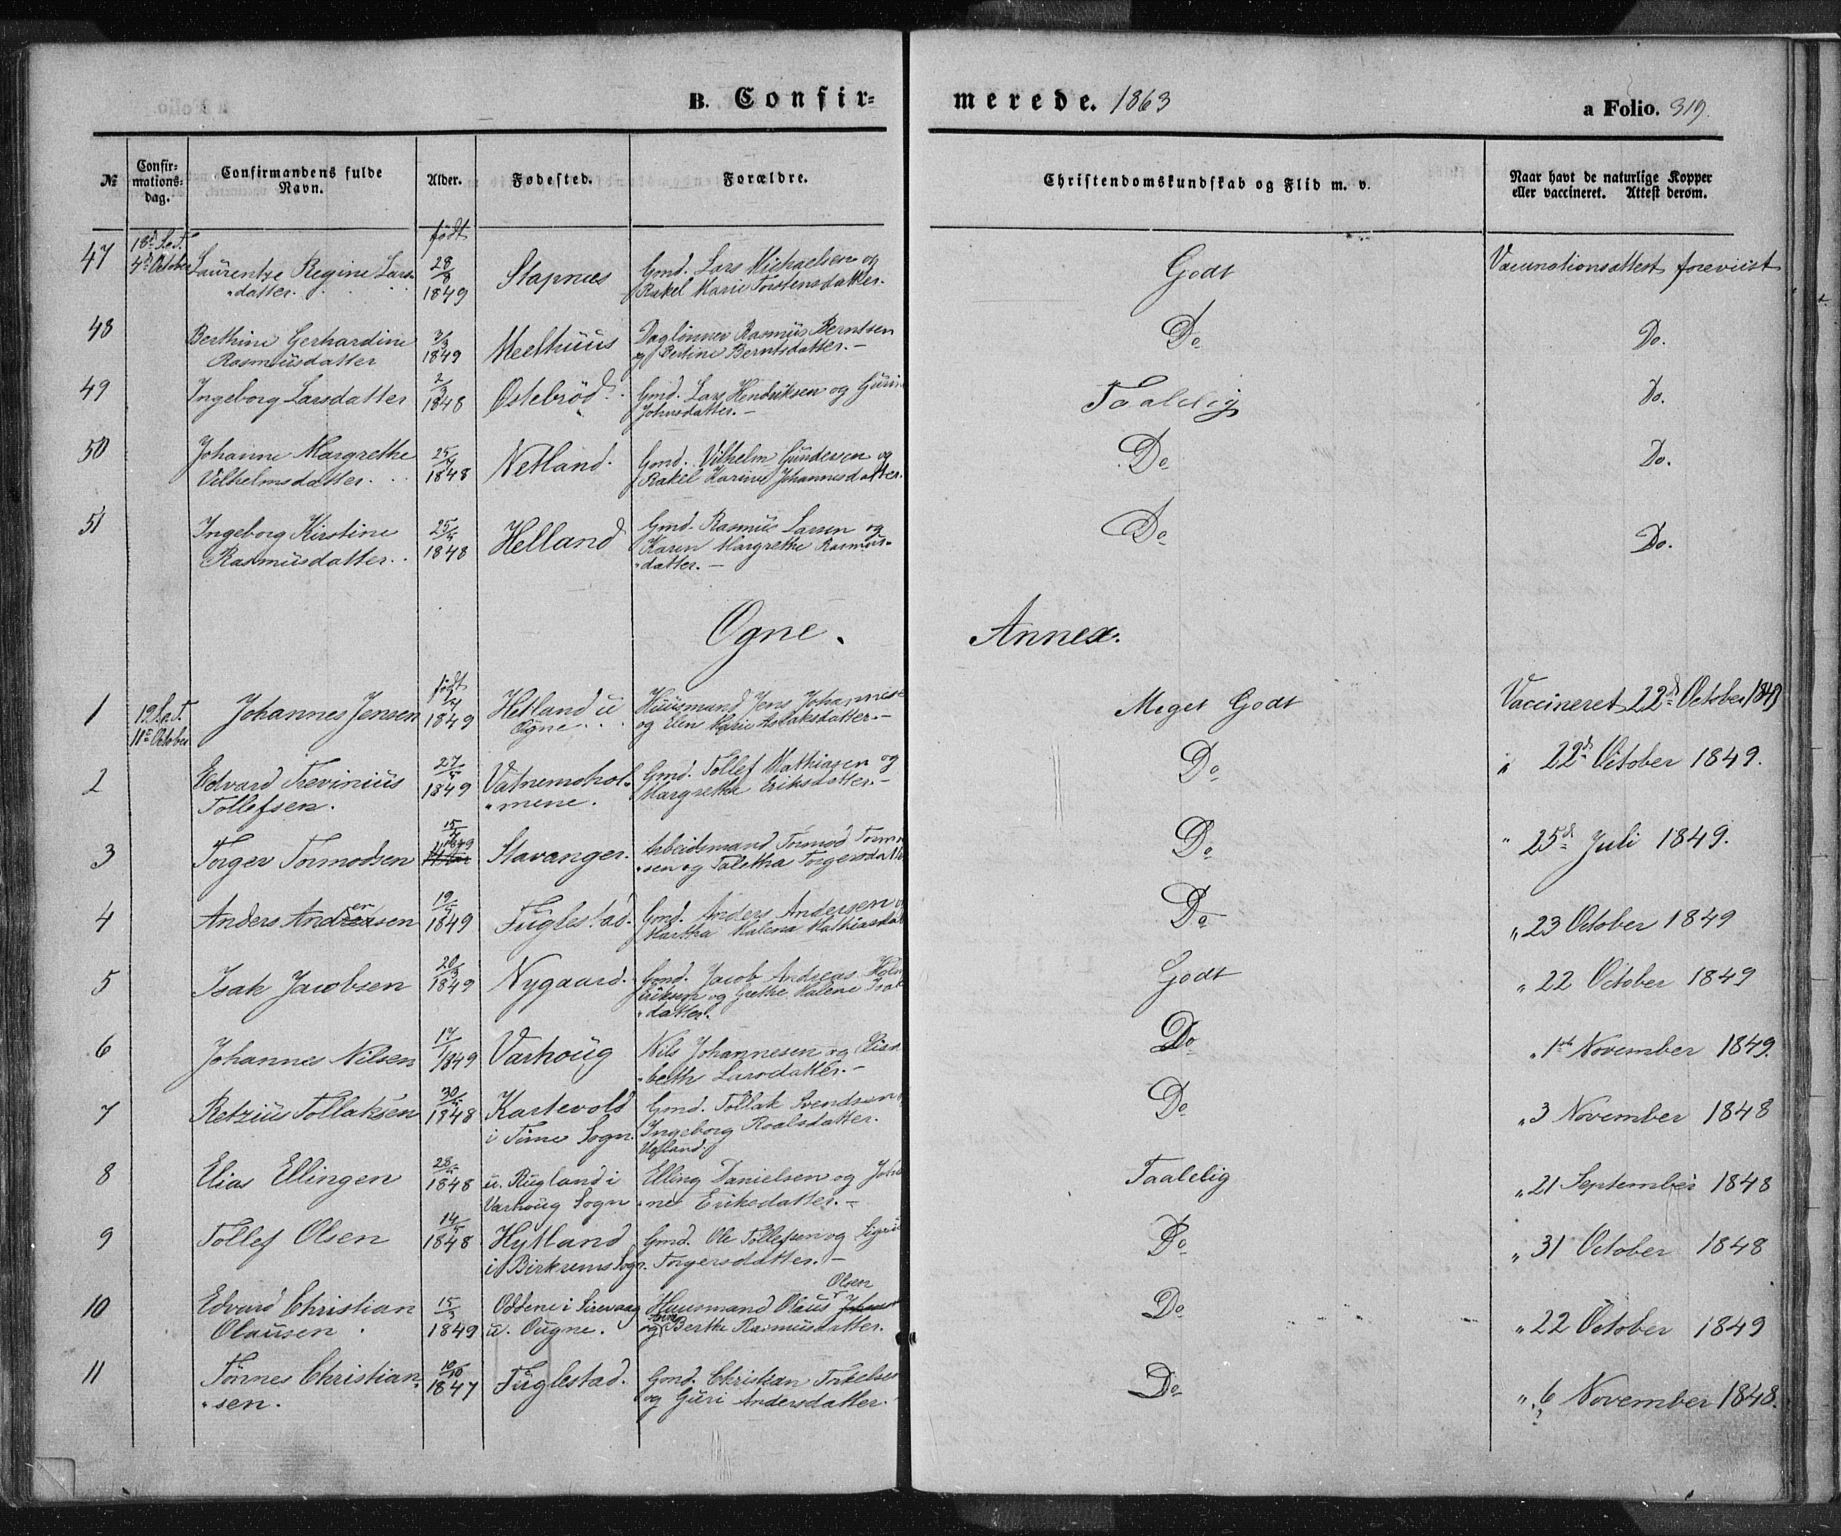 B. Confir=
merede. 1863
a Folio. 319.
№
Confir=
mations=
dag.
Confirmandens fulde
Navn.
Alder.
Fødested.
Forældre.
Christendomskundskab og Flid m. v.
Naar havt de naturlige Kopper
eller vaccineret. Attest derom.
47
4d October
Laurentze Regine Lars-
datter.
født
28/9
1849
Stapnæs
Gmd. Lars Michaelsen og
Rakel Marie Torstensdatter.
Godt
Vaccinationsattest foreviist
48
Berthine Gerhardine
Rasmusdatter
1849
Meelhuus
Daglønner Rasmus Berntsen
og Bertine Berntsdatter.-
Do
Do.
49
Ingeborg Larsdatter
1848
Ostebrød.
Gmd. Lars Hendriksen og Guri
Johnsdatter.-
Taalelig
Do.
50
Johanne Margrethe
Vilhelmsdatter.
1848
Netland.
Gmd. Vilhelm Gundersen og
Rakel Karine Johannesdatter.
Do
Do.
51
Ingeborg Kirstine
Rasmusdatter.
1848
Helland
Gmd. Rasmus Larsen og
Karen Margrethe Rasmus-
datter.-
Do
Do.
Ogne. Annex.
1
11te October
Johannes Jensen
født
1849
Hetland u
Ogne
Huusmand Jens Johannese
og Elen Marie Aslaksdatter.-
Meget Godt
Vaccineret 22d October 1849
2
Edvard Trevinius
Tollefsen.
1849
Vatnemohol-
mene.
Gmd. Tollef Mathiasen og
Margrethe Eriksdatter.-
Do
" 22d October 1849.
3
Torger Tormodsen
Stavanger.
Arbeidsmand Tormod Tormo
sen og Taletha Torgersdatte
Do
" 25d Juli 1849.
4
Anders Andersen
19
1849
Fuglestad.
Gmd. Anders Andersen o
Martha Malena Mathiasdat
Do
" 23 October 1849
5
Isak Jacobsen
20
1849
Nygaard.
Gmd. Jacob Andreas
Eriksen og Grethe Malene Isak
datter.
Godt
" 22 October 1849
6
Johannes Nilsen
1849
Varhoug
Nils Johannesen og Elisa
beth Larsdatter.-
Do
" 1ste November 1849.
7
Retzius Tollaksen
30
1848
Kartevold
i Time Sogn.
Gmd. Tollak Svendsen
Ingeborg Roalsdatter.
Do
" 3 November 1848
8
Elias Ellingen
28
1848
u. Rugland i
Varhoug Sogn
Elling Danielsen og Joha
ne Eriksdatter.-
Taalelig
" 21 September 1848
9
Tollef Olsen
14
1848
Hytland
i Birkrems Sogn.
Gmd. Ole Tollefsen og Sigri
Torgersdatter.-
Do
" 31 October 1848
10
Edvard Christian
Olausen
15/3
1849
Oddene i Sirevaag
u. Ougne.
Olsen
Huusmand Olaus
og Berthe Rasmusdatter.
Do
" 22 October 1849
11
Tønnes Christian-
sen.
10/10
1847
Fuglestad.
Gmd. Christian Torkelse
og Guri Andersdatter.
Do
" 6 November 1848.